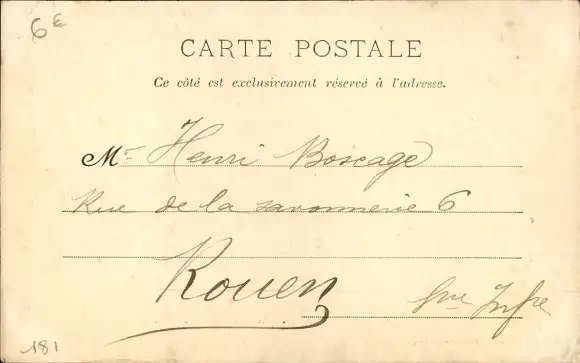 6E
CARTE POSTALE
Ce côté est exclusivement réservé à l'adresse.
Mr Henri Boscage
Rue de la savonnerie 6
Rouen
Sne Infre
181